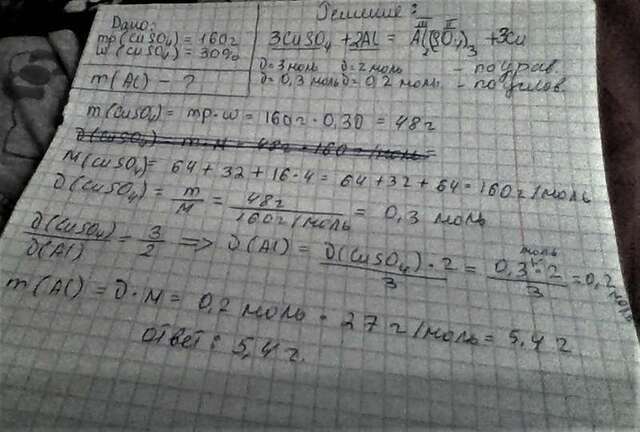 Дано:
mр(CuSO₄) = 160г
w(CuSO₄) = 30%
m(Al) - ?
Решение:
III II
3CuSO₄ + 2Al = Al₂(SO₄)₃ + 3Cu
ν=3моль ν=2моль - по урав.
ν=0,3моль ν=0,2 моль - по услов.
m(CuSO₄) = mр·w = 160г · 0,30 = 48г
M(CuSO₄) = 64 + 32 + 16·4 = 64 + 32 + 64 = 160г/моль
ν(CuSO₄) = m/M = 48г/160г/моль = 0,3 моль
ν(CuSO₄)/ν(Al) = 3/2 => ν(Al) = ν(CuSO₄)·2/3 = 0,3 моль·2/3 = 0,2 моль
m(Al) = ν·M = 0,2 моль · 27 г/моль = 5,4 г
Ответ: 5,4 г.